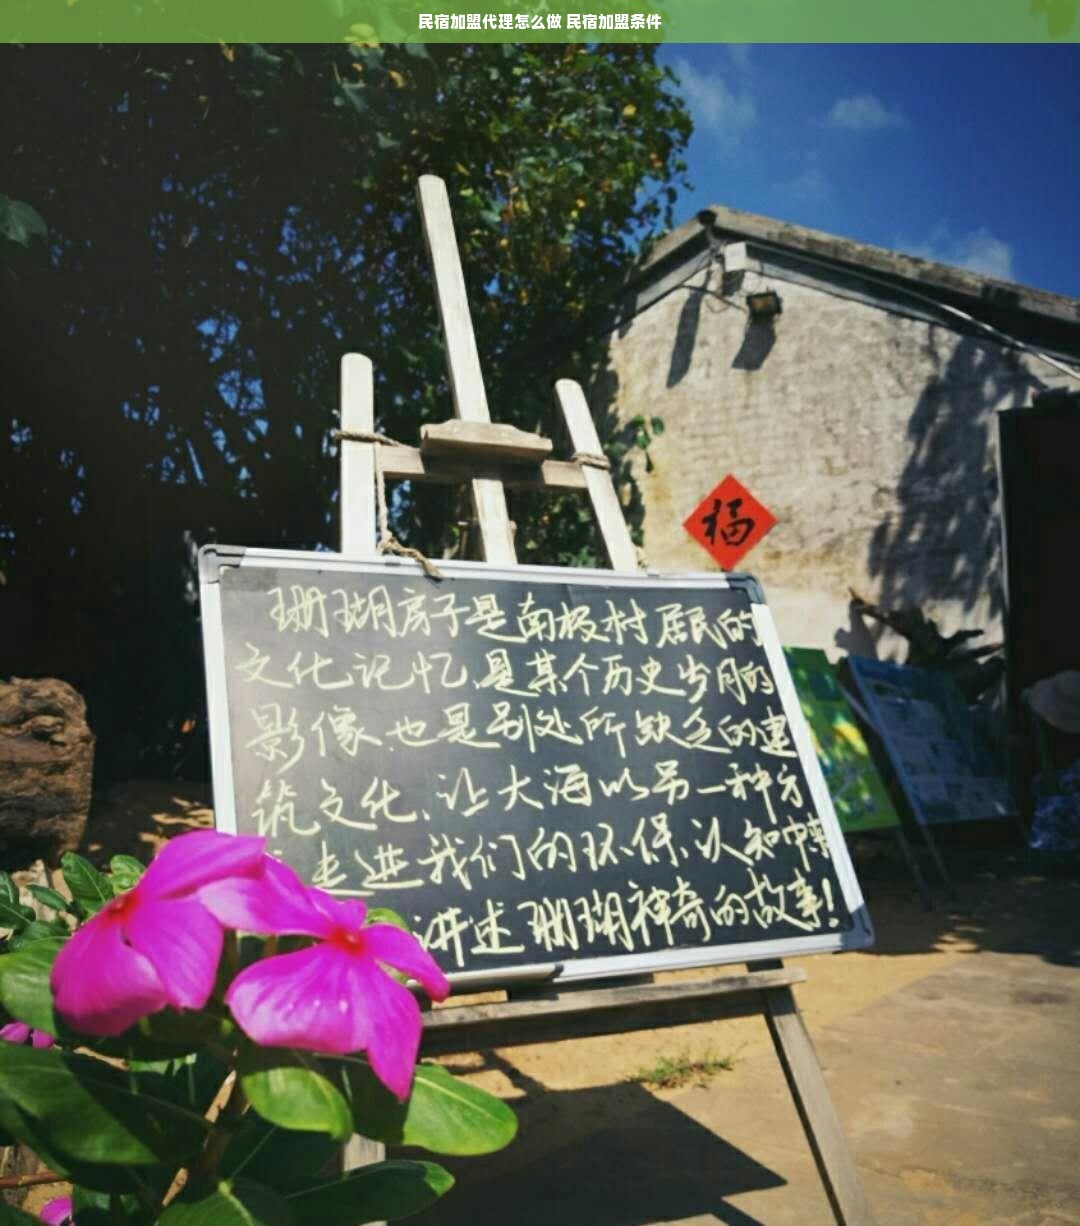 民宿加盟代理怎么做 民宿加盟条件
福
珊瑚房子是南极村居民的
文化记忆、是某个历史岁月的
影像、也是别处所缺乏的建
筑文化、让大海以另一种方
走进我们的环保、认知
讲述珊瑚神奇的故事!